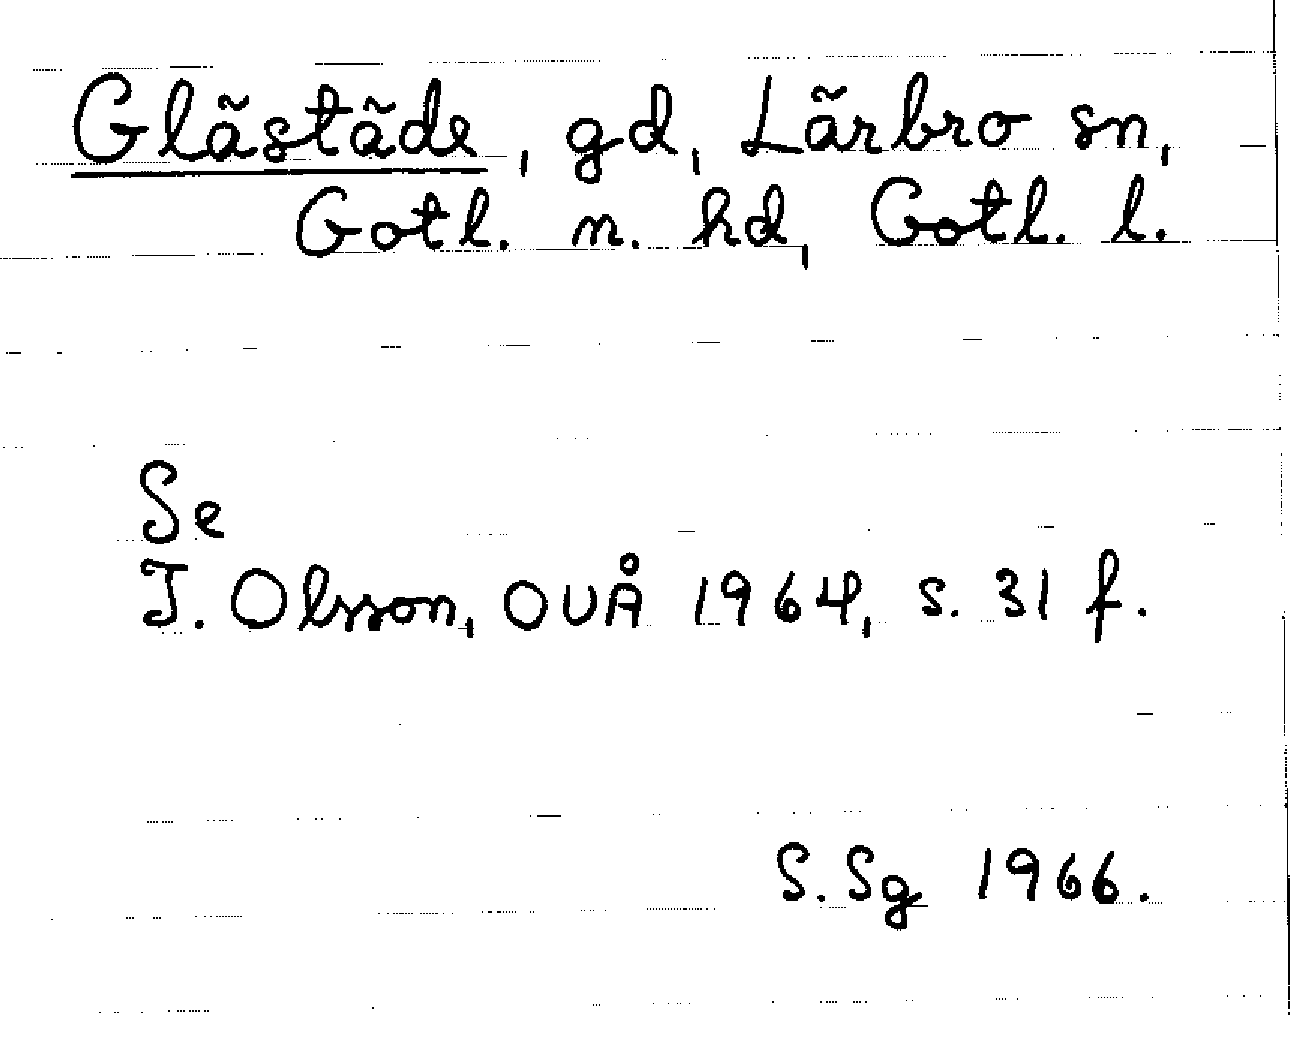 Glästäde, gd, Lärbro sn,
Gotl. n. hd, Gotl. l.
Se
I. Olsson, OUÅ 1964, s. 31 f.
S. Sg 1966.